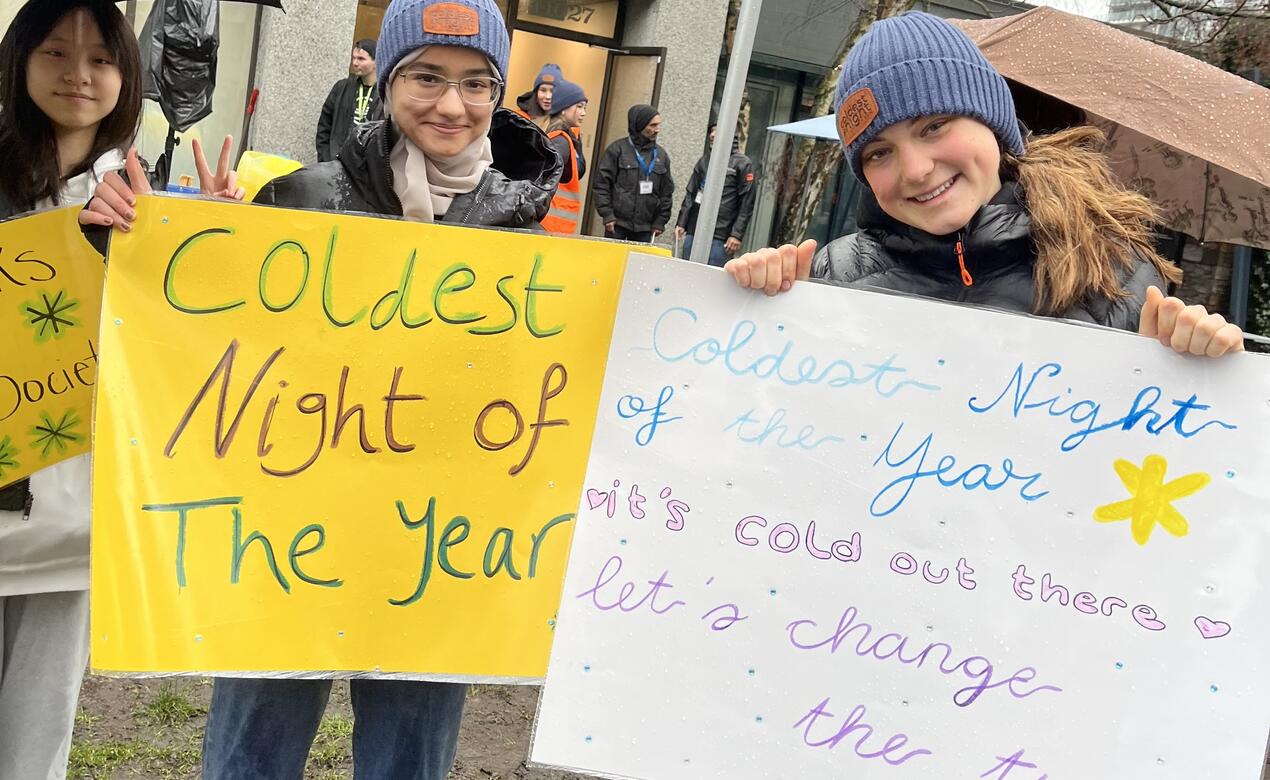 27
Coldest
Night of
The Year
Coldest Night
of the Year
it's cold out there
let's change
the
coldest
night